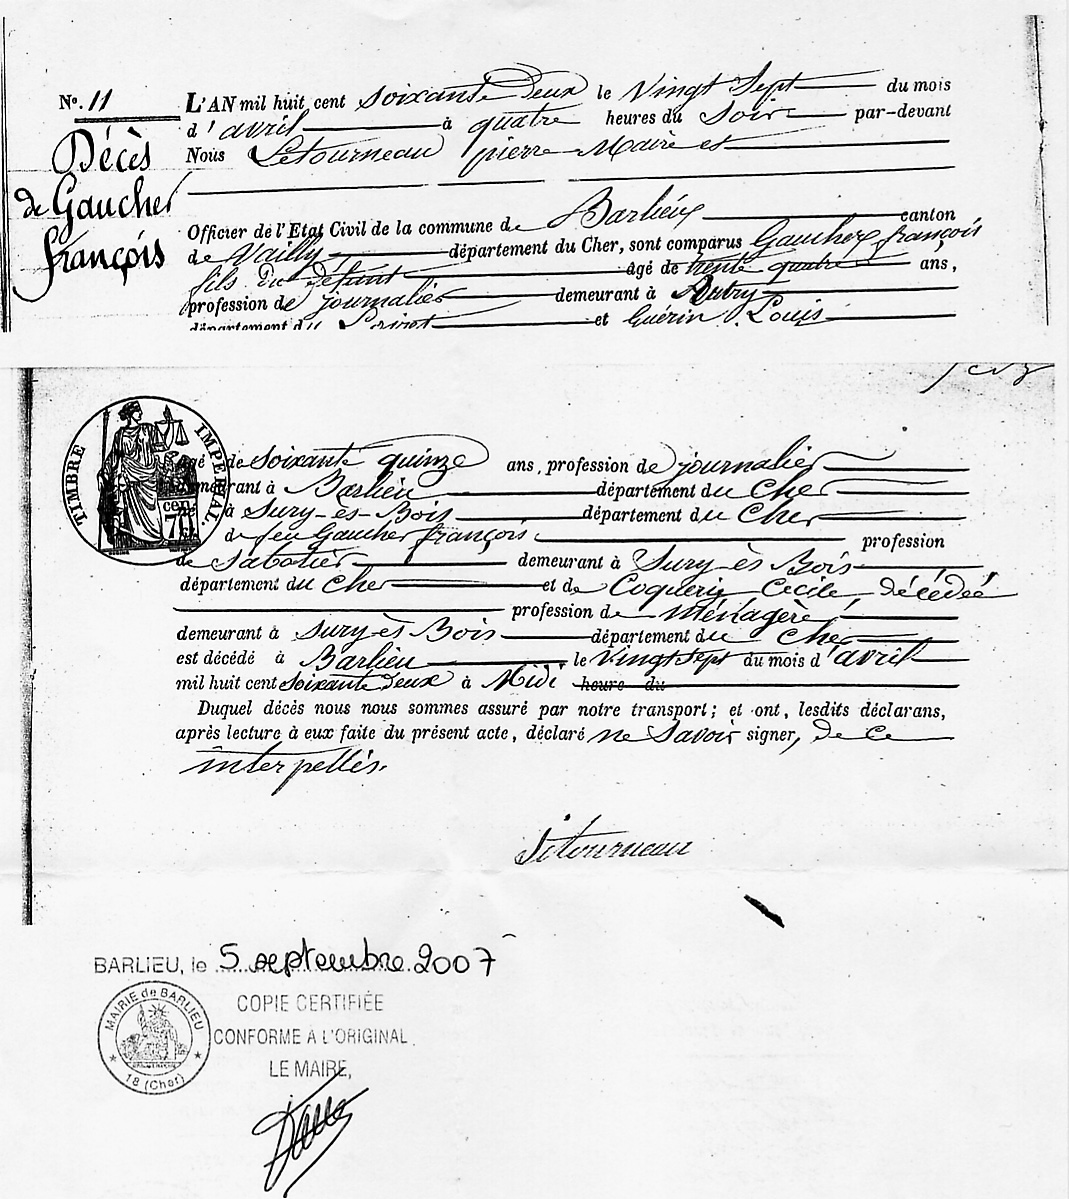 Nº. 11
Décès
de Gaucher
françois
L'AN mil huit cent soixante Deux le Vingt Sept du mois
d'avril à quatre heures du Soir par-devant
Nous Létourneau pierre Maire et
Officier de l'Etat Civil de la commune de Barlieu canton
de Vailly département du Cher, sont comparus Gaucher françois
fils Du Défunt âgé de trente quatre ans,
profession de journalier demeurant à Autry
département du Loiret et Guérin Louis
TIMBRE IMPERIAL.
cen
7
âgé de soixante quinze ans, profession de journalier
demeurant à Barlieu département du Cher
né à Sury-ès-Bois département du Cher
de feu Gaucher françois profession
de Sabotier demeurant à Sury ès Bois
département du Cher et de Coquerie Cecile, décédée
profession de Ménagère
demeurant à Sury ès Bois département du Cher
est décédé à Barlieu le Vingt sept du mois d'avril
mil huit cent Soixante Deux à Midi heure du
Duquel décès nous nous sommes assuré par notre transport; et ont, lesdits déclarans,
après lecture à eux faite du présent acte, déclaré ne Savoir signer, de ce
interpellés.
Létourneau
BARLIEU, le 5 septembre 2007
COPIE CERTIFIÉE
CONFORME À L'ORIGINAL
LE MAIRE,
MAIRIE de BARLIEU
* 18 (Cher) *